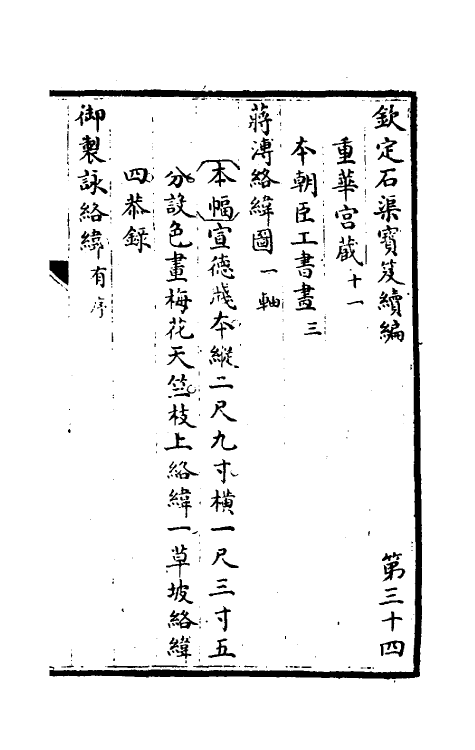 欽定石渠寶笈續編 第三十四
重華宮藏十一
本朝臣工書畫三
蔣溥絡緯圖一軸
本幅宣德牋本縱二尺九寸橫一尺三寸五
分設色畫梅花天竺枝上絡緯一草坡絡緯
四恭錄
御製詠絡緯有序